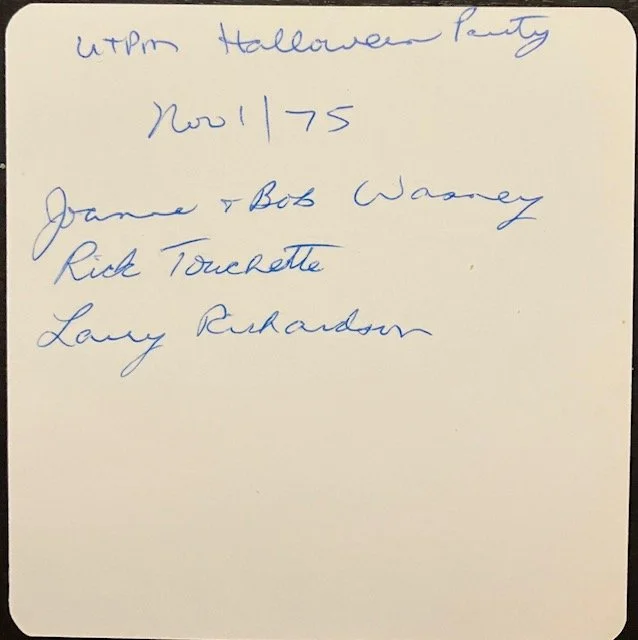 Halloween Party
Nov 1/75
Joanne + Bob Wasney
Rick Touchette
Larry Richardson